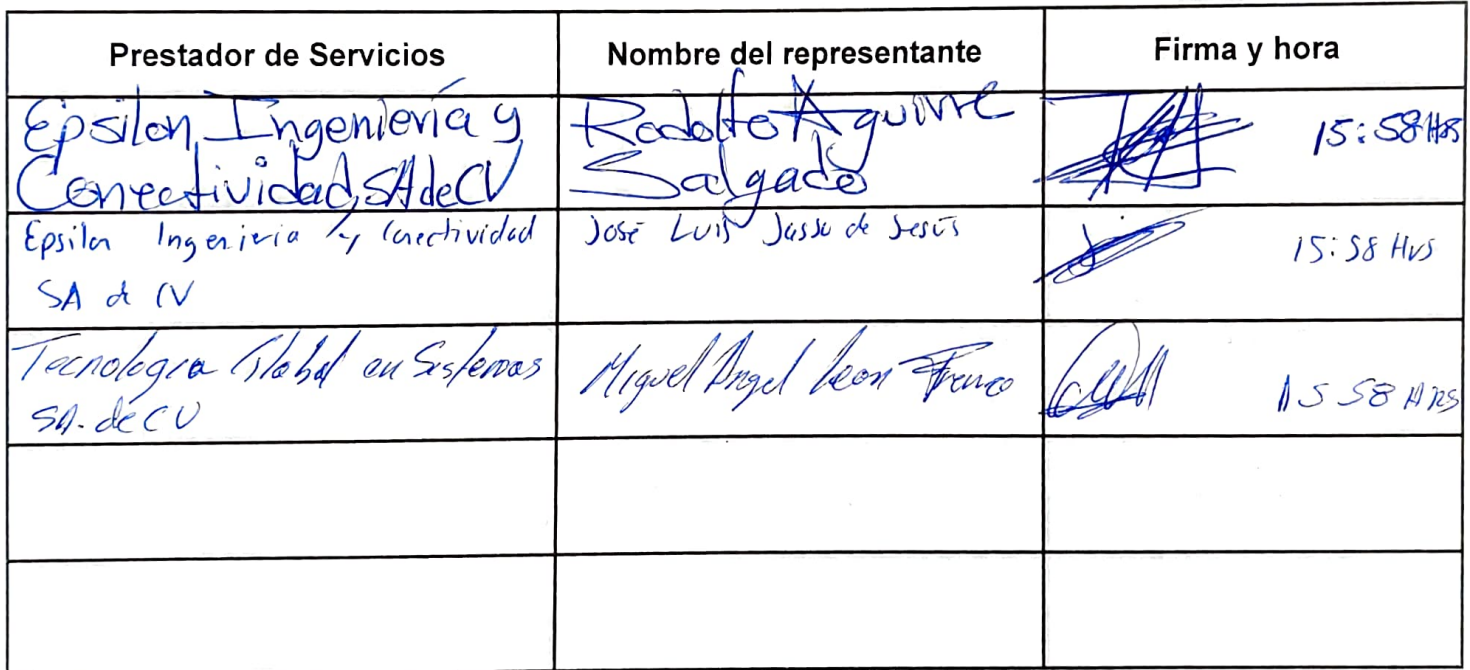 Prestador de Servicios
Nombre del representante
Firma y hora
Epsilon Ingeniería y
Conectividad, SA de CV
Rodolfo Aguirre
Salgado
15:58 Hrs
Epsilon Ingenieria y Conectividad
SA de CV
José Luis Jasso de Jesús
15:58 Hrs
Tecnologia Global en Sistemas
SA. de CV
Miguel Angel Leon Franco
15 58 HRS